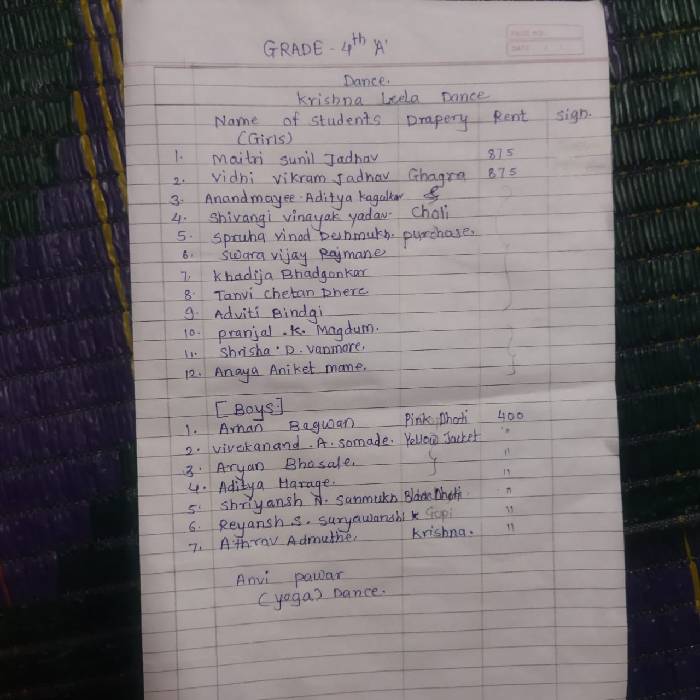 GRADE - 4th 'A'
PAGE NO.
DATE
Dance.
Krishna Leela Dance
Name of students Drapery Rent sign.
(Girls)
1. Maitri sunil Jadhav 875
2. Vidhi Vikram Jadhav Ghagra 875
3. Anandmayee Aditya Kagalkar &
4. Shivangi vinayak yadav. Choli
5. Spruha vinod Deshmukh. purchase.
6. Swara vijay Rajmane
7. Khadija Bhadgonkar
8. Tanvi chetan Dhere
9. Adviti Bindgi
10. pranjal .K. Magdum.
11. Shrisha . D. vanmore.
12. Anaya Aniket mane.
[Boys]
1. Arhan Bagwan Pink Dhoti 400
2. vivekanand .A. somade. Yellow Jacket "
3. Aryan Bhosale. "
4. Aditya Harage. "
5. Shriyansh N. Sanmukh Dhoti "
6. Reyansh S. Suryawanshi Gopi "
7. Athrav Admuthe. Krishna. "
Anvi pawar
(yoga) Dance.